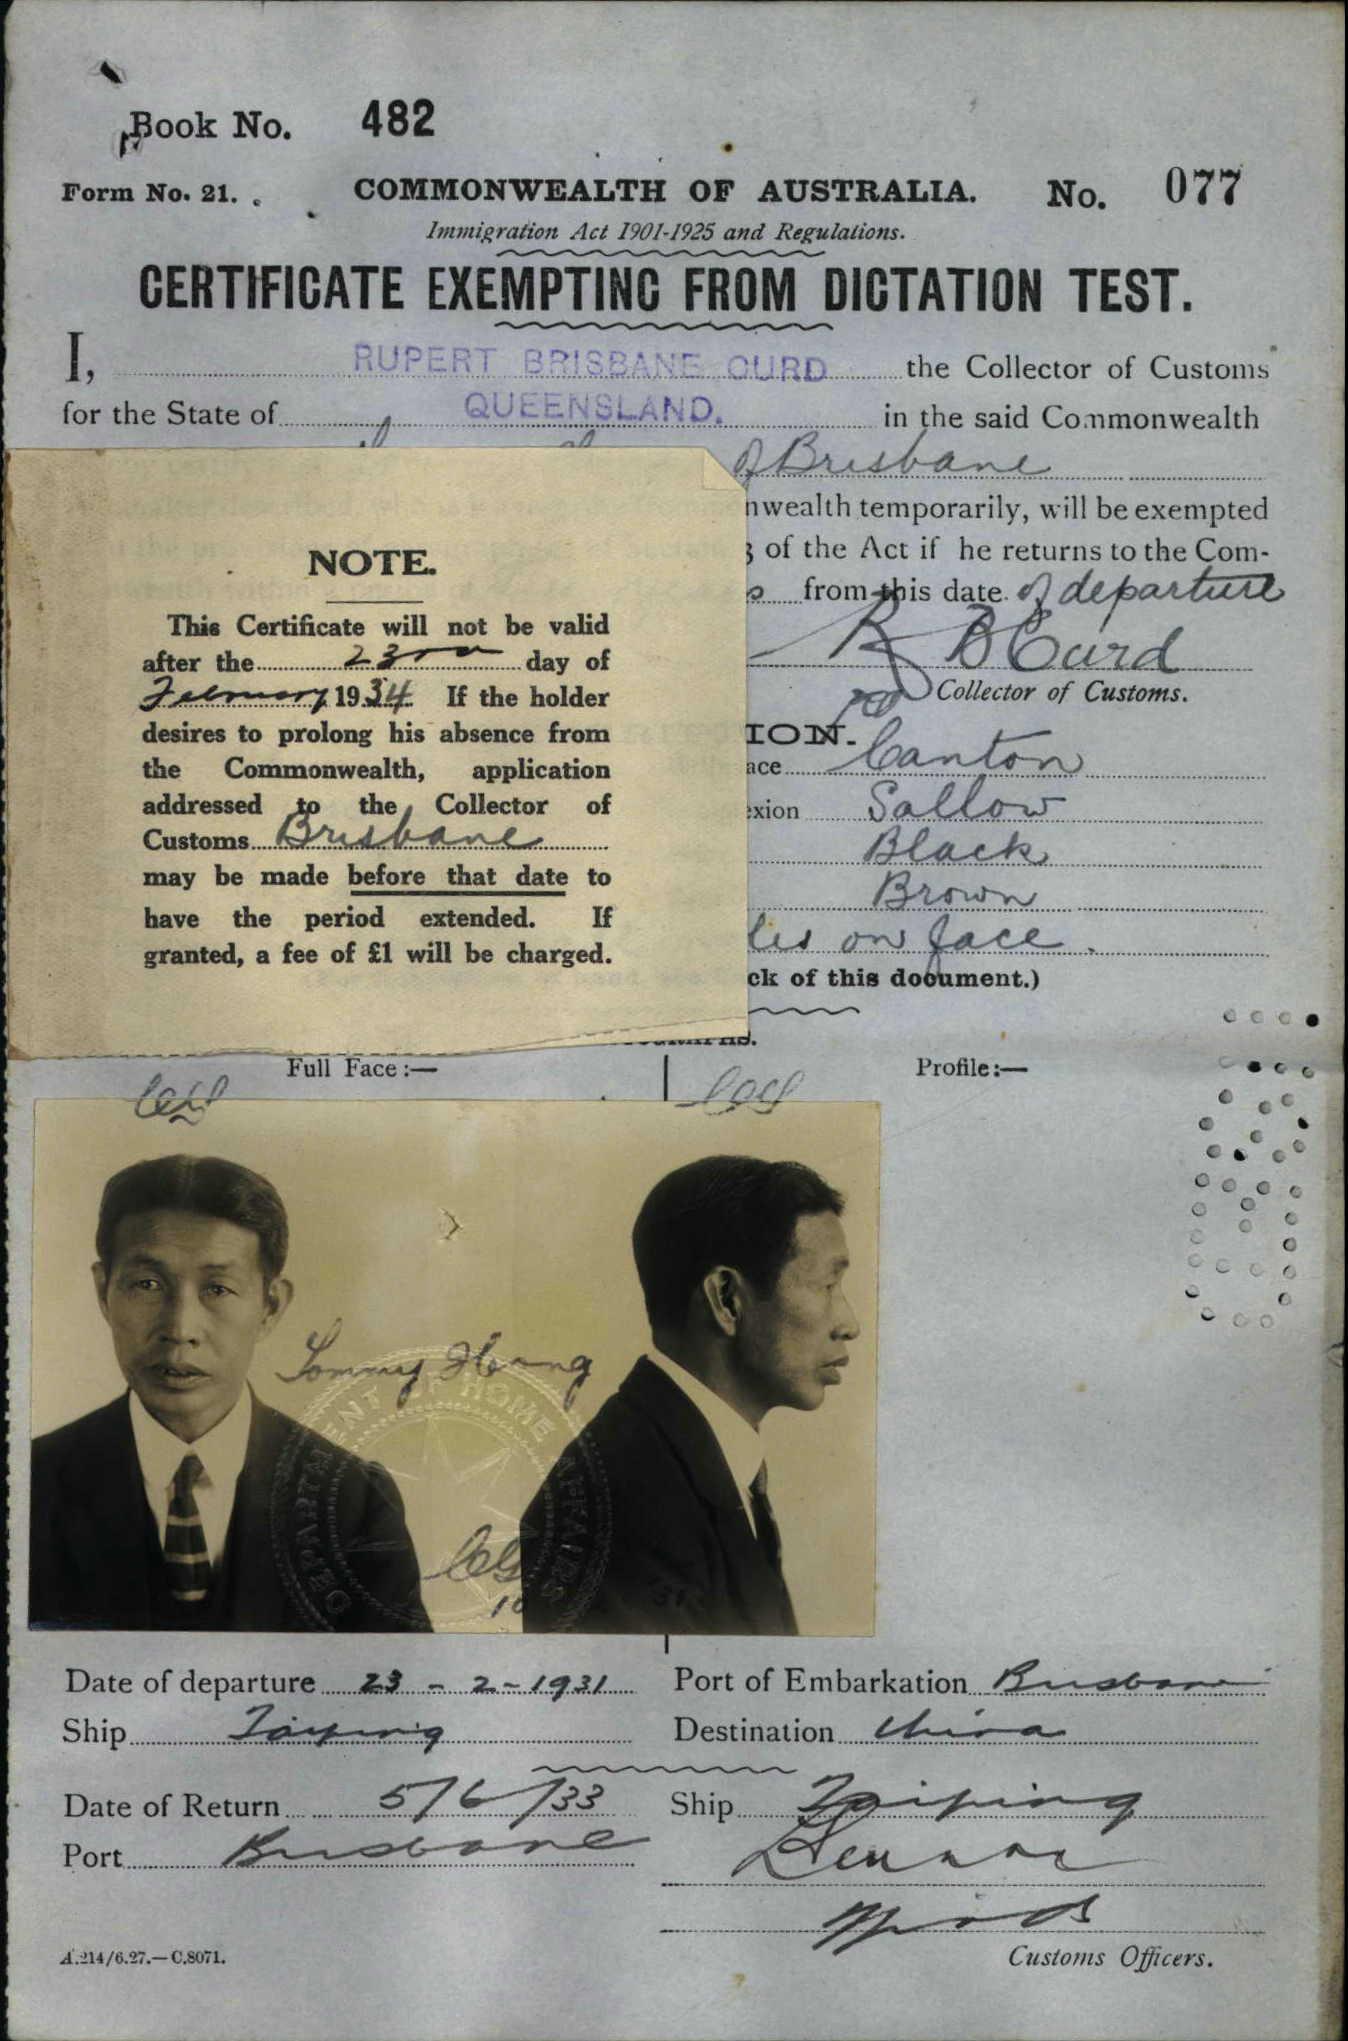 Book No. 482
Form No. 21. COMMONWEALTH OF AUSTRALIA. No. 077
Immigration Act 1901-1925 and Regulations.
CERTIFICATE EXEMPTING FROM DICTATION TEST.
I, RUPERT BRISBANE CURD the Collector of Customs
for the State of QUEENSLAND. in the said Commonwealth
of Brisbane
nwealth temporarily, will be exempted
3 of the Act if he returns to the Com-
from this date of departure
R B Curd
Collector of Customs.
ION.
ace Canton
exion Sallow
Black
Brown
les on face.
ck of this document.)
NOTE.
This Certificate will not be valid
after the 23rd day of
February 1934 If the holder
desires to prolong his absence from
the Commonwealth, application
addressed to the Collector of
Customs Brisbane
may be made before that date to
have the period extended. If
granted, a fee of £1 will be charged.
Full Face:— Profile:—
Tommy Hong
DEPARTMENT OF HOME AFFAIRS
Date of departure 23-2-1931 Port of Embarkation Brisbane
Ship Taiping Destination China
Date of Return 5/6/33 Ship Taiping
Port Brisbane
Customs Officers.
A.214/6.27.—C.8071.